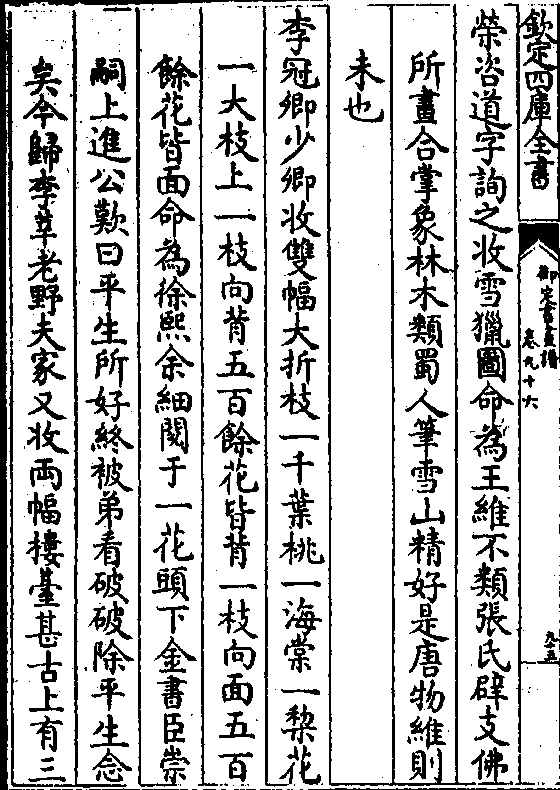 欽定四庫全書
御定書畫譜
卷九十六
九十五
榮咨道字詢之收雪獵圖命為王維不類張氏辟支佛
所畫合掌象林木類蜀人筆雪山精好是唐物維則
未也
李冠卿少卿收雙幅大折枝一千葉桃一海棠一棃花
一大枝上一枝向背五百餘花皆背一枝向面五百
餘花皆面命為徐熙余細閱于一花頭下金書臣崇
嗣上進公歎曰平生所好終被弟看破破除平生念
矣今歸李莘老野夫家又收兩幅樓臺甚古上有三